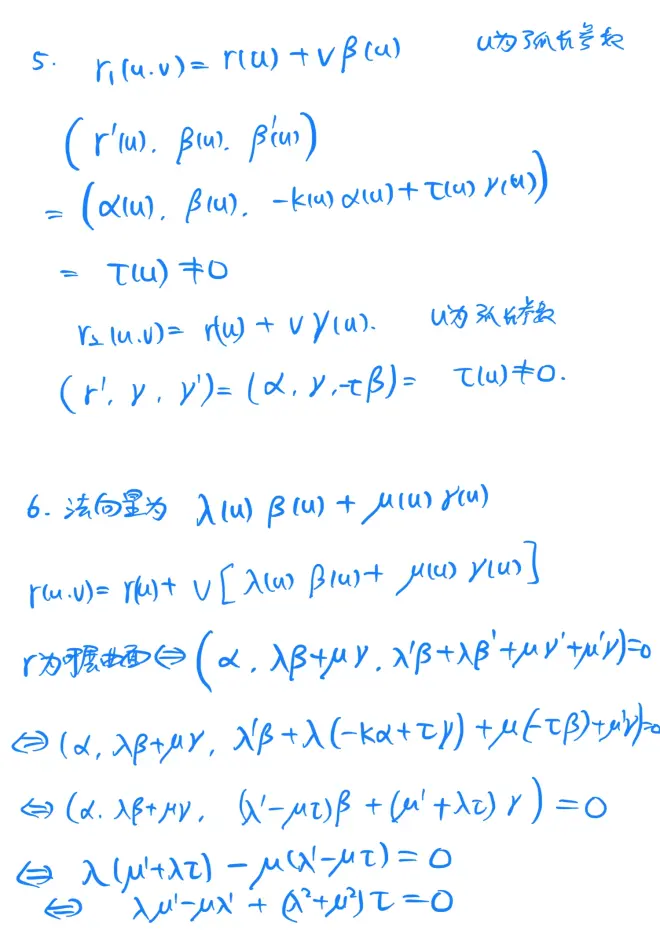 5. r₁(u.v)= r(u) + vβ(u) u为弧长参数
(r'(u), β(u), β'(u))
= (α(u), β(u), -k(u)α(u)+τ(u)γ(u))
= τ(u) ≠0
r₂(u.v)= r(u) + vγ(u). u为弧长参数
(r', γ, γ')= (α, γ, -τβ)= τ(u)≠0.
6. 法向量为 λ(u)β(u) + μ(u)γ(u)
r(u.v)= r(u)+ v[λ(u)β(u)+ μ(u)γ(u)]
r为可展曲面⇔(α, λβ+μγ, λ'β+λβ'+μγ'+μ'γ)=0
⇔(α, λβ+μγ, λ'β+λ(-kα+τγ)+μ(-τβ)+μ'γ)=0
⇔(α. λβ+μγ, (λ'-μτ)β+(μ'+λτ)γ)=0
⇔ λ(μ'+λτ)-μ(λ'-μτ)=0
⇔ λμ'-μλ'+(λ²+μ²)τ=0